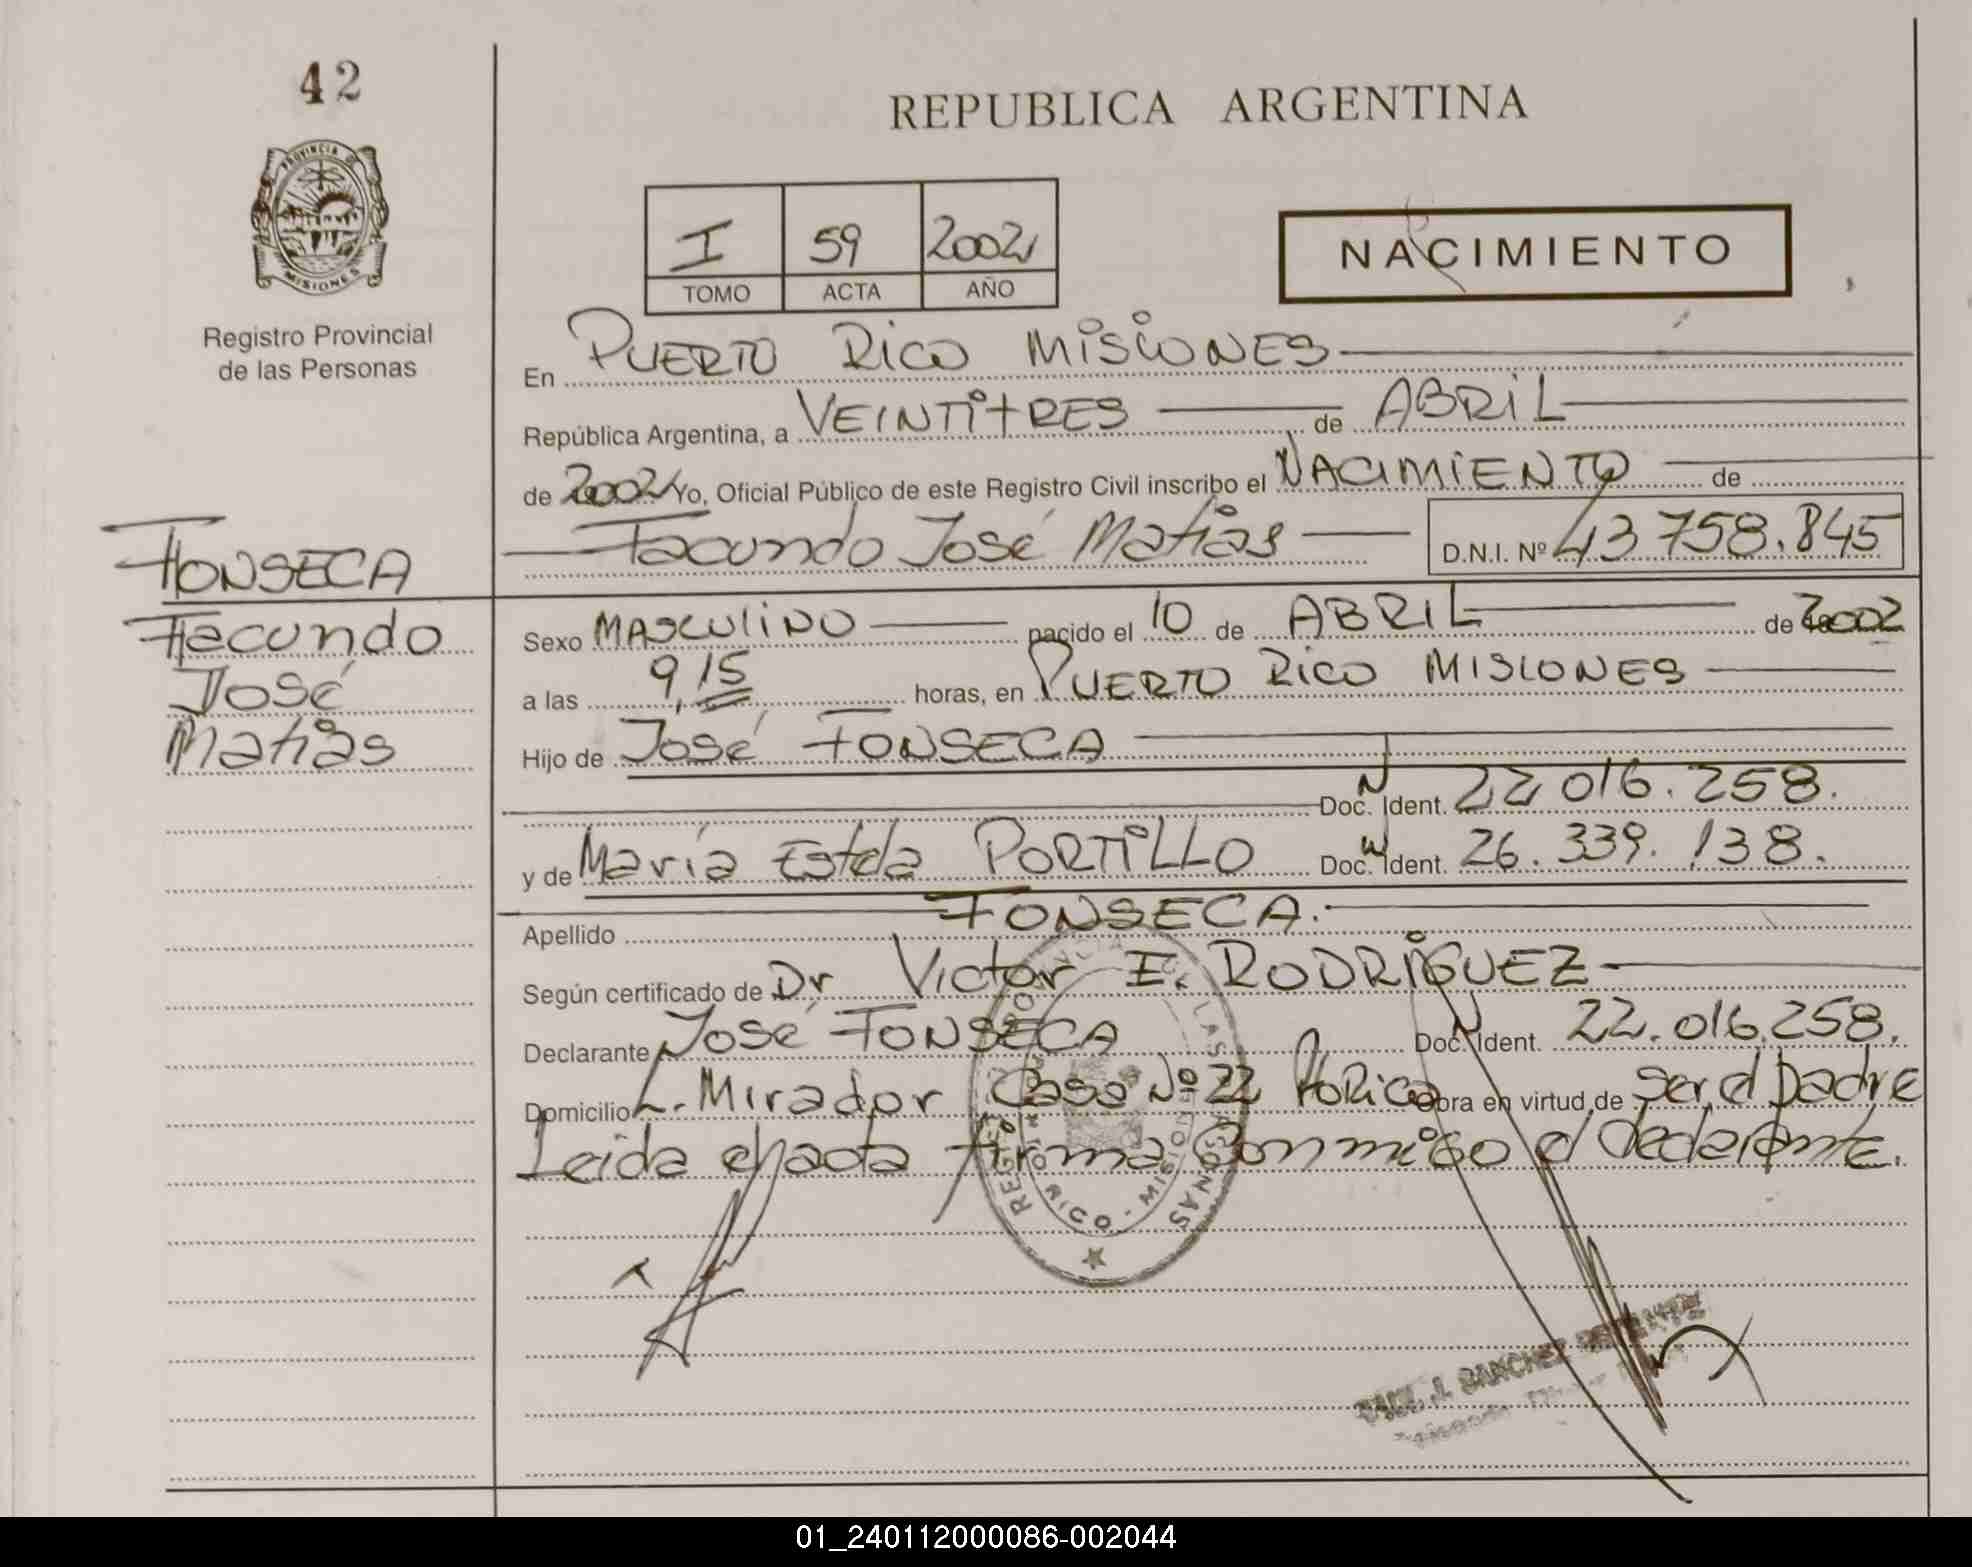 42
REPUBLICA ARGENTINA
PROVINCIA DE
MISIONES
Registro Provincial
de las Personas
I 59 2002
TOMO ACTA AÑO
NACIMIENTO
En PUERTO RICO MISIONES
República Argentina, a VEINTITRES de ABRIL
de 2002 Yo, Oficial Público de este Registro Civil inscribo el NACIMIENTO de
Facundo José Matías D.N.I. Nº 43 758.845
FONSECA
Facundo
José
Matías
Sexo MASCULINO nacido el 10 de ABRIL de 2002
a las 9,15 horas, en PUERTO RICO MISIONES
Hijo de José FONSECA
Doc. Ident. 22 016.258.
y de María Estela PORTILLO Doc. Ident. 26.339.138.
Apellido FONSECA.
Según certificado de Dr Victor E. RODRIGUEZ
Declarante José FONSECA Doc. Ident. 22.016.258.
Domicilio L. Mirador Casa Nº 22 PtoRico obra en virtud de ser el padre
Leida el acta firma conmigo el declarante.
RAUL J. SANCHEZ
01_240112000086-002044